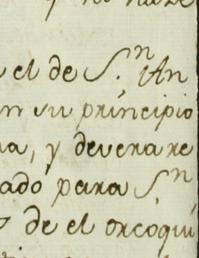 el de S.ⁿ An
en su principio
na, y devera re
ado para Sⁿ
de el orcoqui